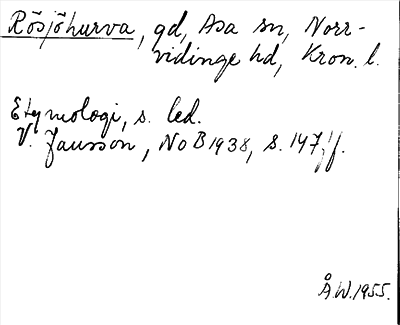 Rösjöhurva, gd, Asa sn, Norr-
vidinge hd, Kron. l.
Etymologi, s. led.
V. Jansson, NoB 1938, s. 147, ff.
Å.W. 1955.